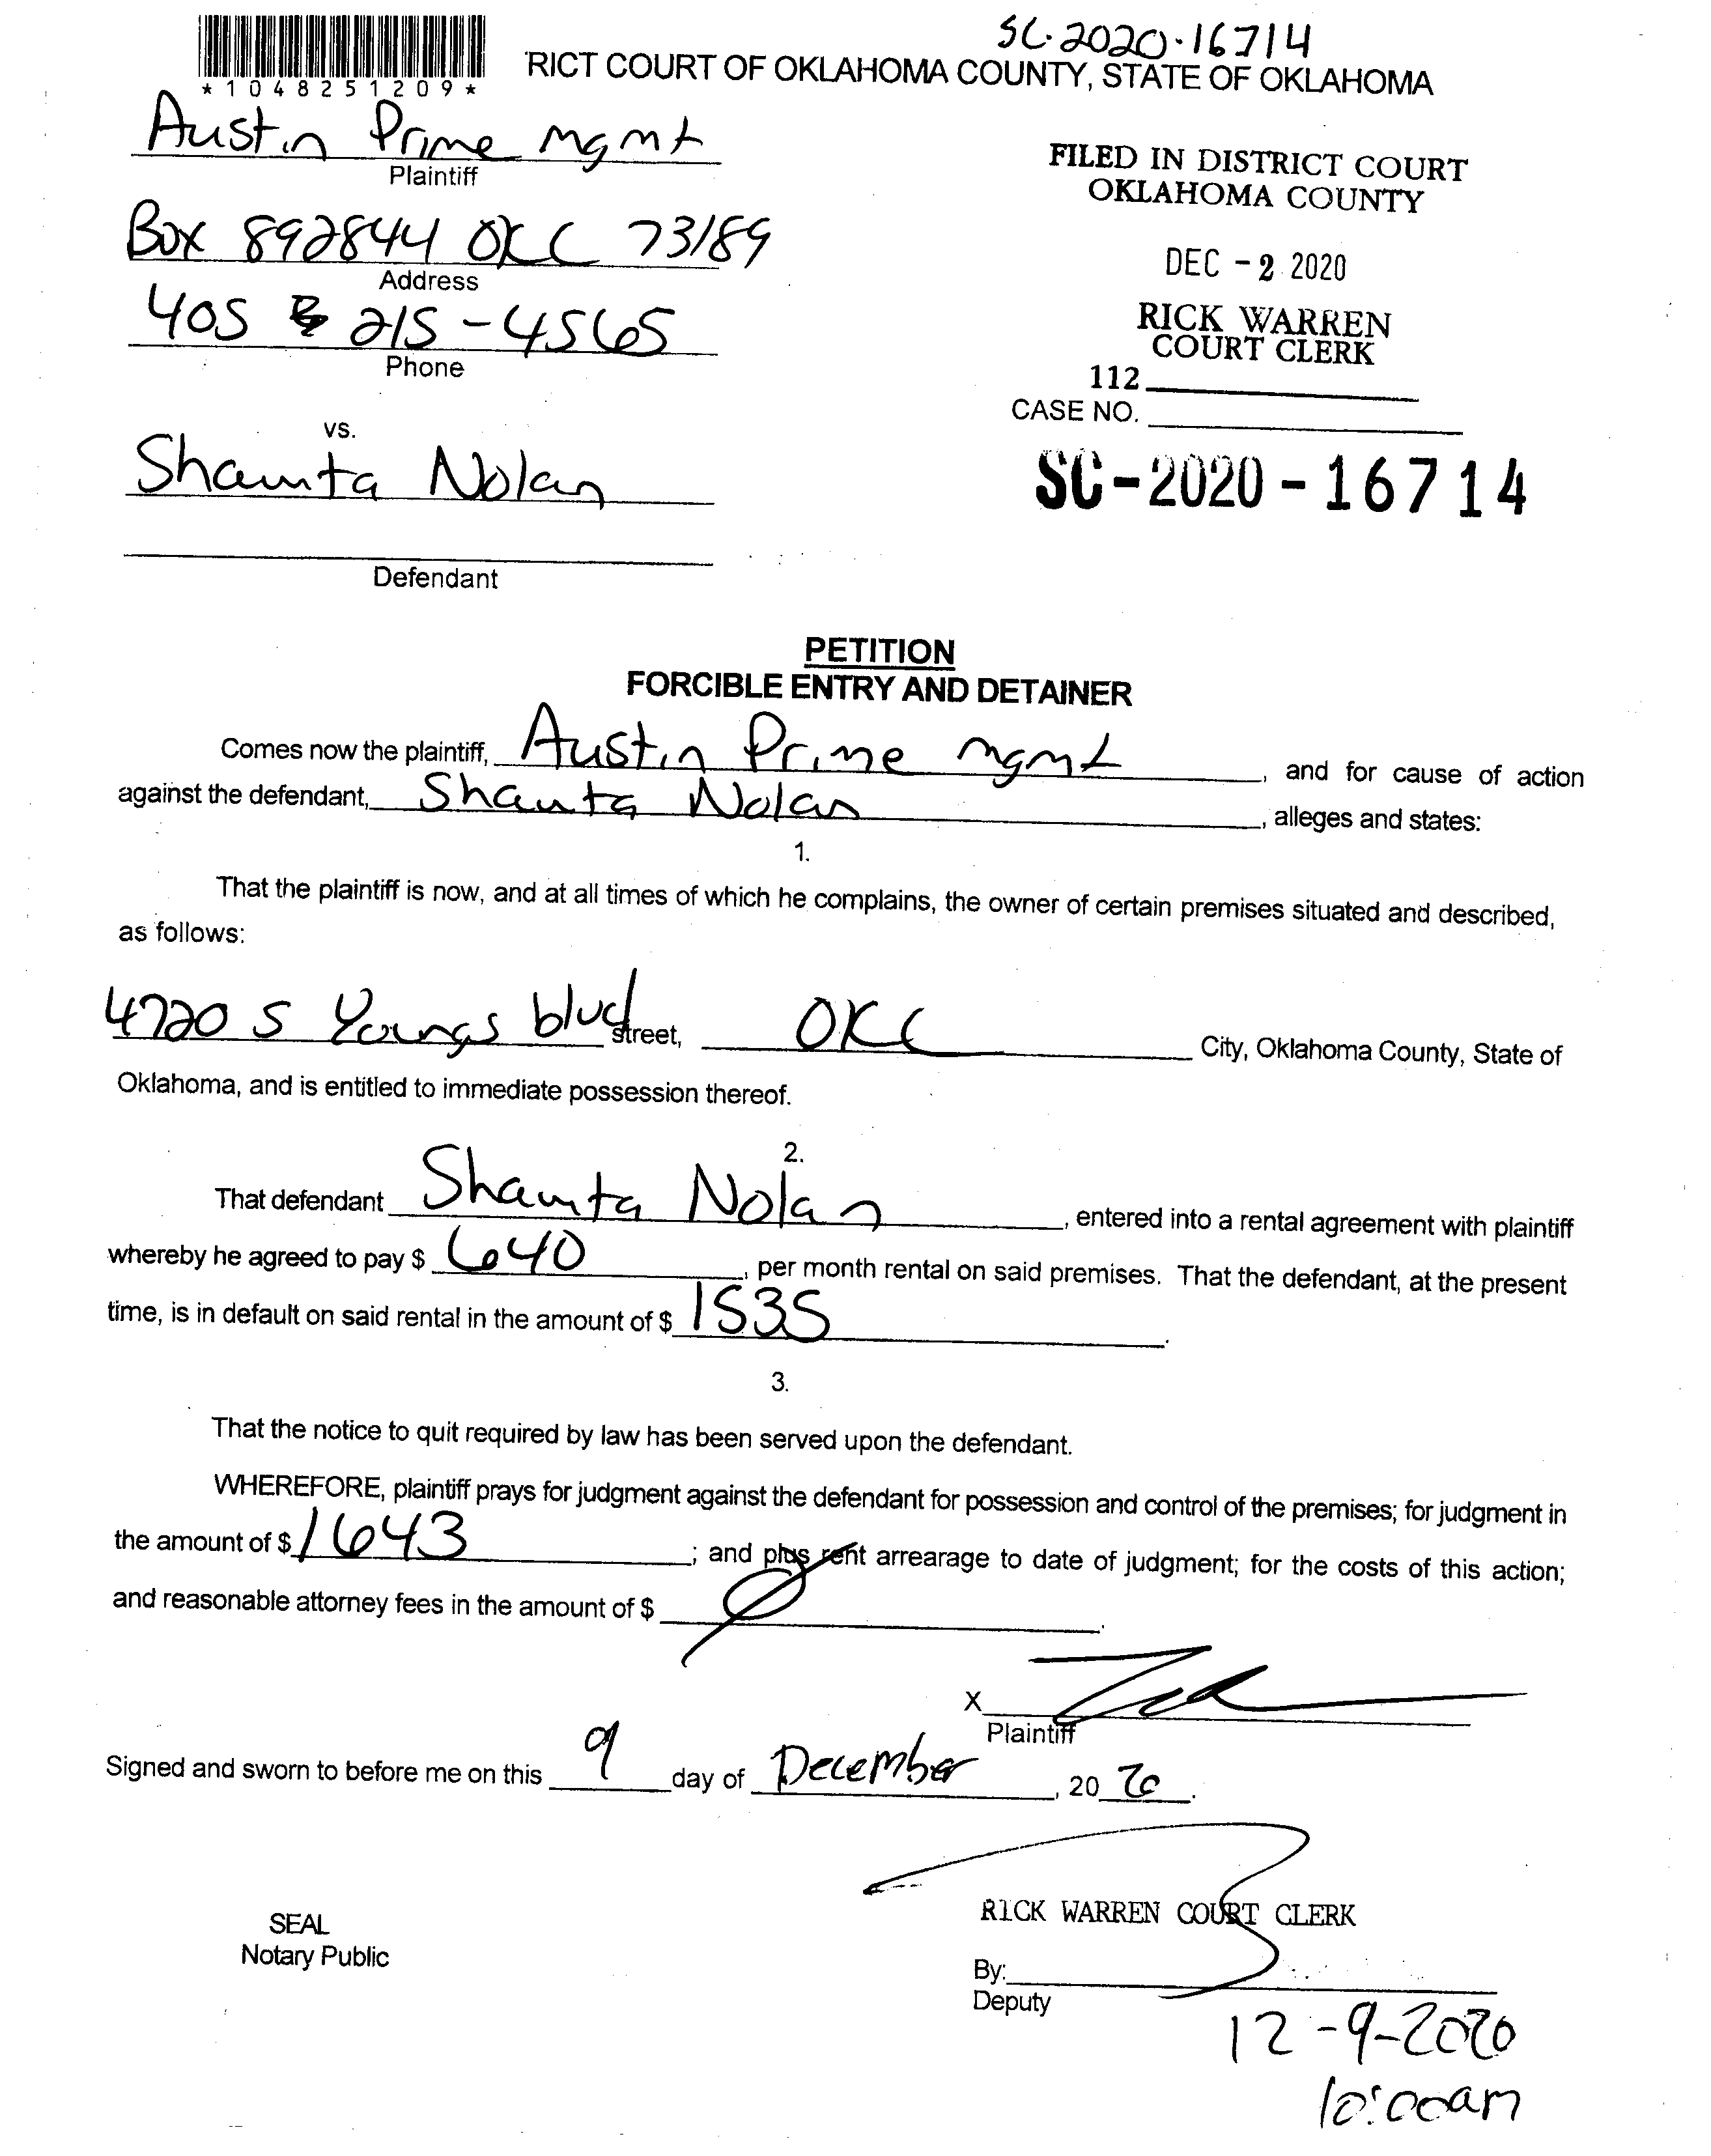 SC-2020-16714
*1048251209*
RICT COURT OF OKLAHOMA COUNTY, STATE OF OKLAHOMA
Austin Prime Mgmt
Plaintiff
FILED IN DISTRICT COURT
OKLAHOMA COUNTY
Box 892844 OKC 73189
Address
DEC -2 2020
405 215-4565
Phone
RICK WARREN
COURT CLERK
112
CASE NO.
vs.
Shaunta Nolan
SC-2020-16714
Defendant
PETITION
FORCIBLE ENTRY AND DETAINER
Comes now the plaintiff, Austin Prime mgmt, and for cause of action
against the defendant, Shaunta Nolan, alleges and states:
1.
That the plaintiff is now, and at all times of which he complains, the owner of certain premises situated and described,
as follows:
4720 S Youngs blvd street, OKC City, Oklahoma County, State of
Oklahoma, and is entitled to immediate possession thereof.
2.
That defendant Shaunta Nolan, entered into a rental agreement with plaintiff
whereby he agreed to pay $ 640, per month rental on said premises. That the defendant, at the present
time, is in default on said rental in the amount of $ 1535.
3.
That the notice to quit required by law has been served upon the defendant.
WHEREFORE, plaintiff prays for judgment against the defendant for possession and control of the premises; for judgment in
the amount of $ 1643; and plus rent arrearage to date of judgment; for the costs of this action;
and reasonable attorney fees in the amount of $ Ø.
X
Plaintiff
Signed and sworn to before me on this 9 day of December, 20 20.
RICK WARREN COURT CLERK
SEAL
Notary Public
By:
Deputy
12-9-2020
10:00am